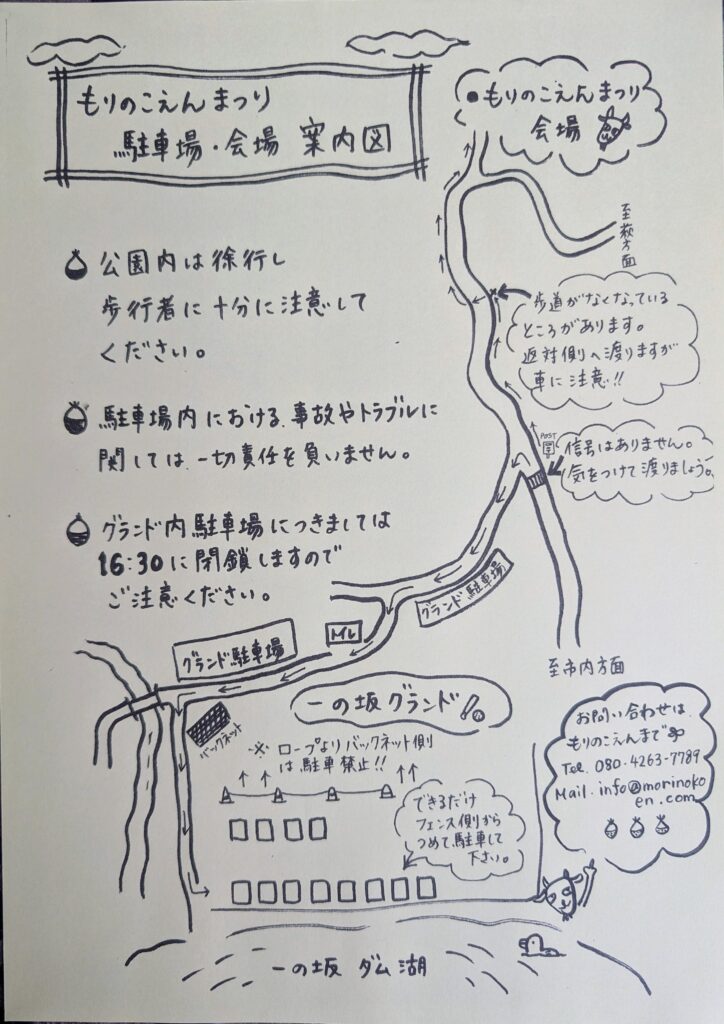 もりのこえんまつり
駐車場・会場 案内図
●もりのこえんまつり
会場
至萩方面
公園内は徐行し
歩行者に十分に注意して
ください。
歩道がなくなっている
ところがあります。
反対側へ渡りますが
車に注意!!
駐車場内における事故やトラブルに
関しては一切責任を負いません。
POST
信号はありません。
気をつけて渡りましょう。
グランド内駐車場につきましては
16:30に閉鎖しますので
ご注意ください。
グランド駐車場
トイレ
グランド駐車場
至市内方面
一の坂グランド
バックネット
※ロープよりバックネット側
は駐車禁止!!
お問い合わせは
もりのこえんまで
Tel. 080-4263-7789
Mail. info@morinoko
en.com
できるだけ
フェンス側から
つめて駐車して
下さい。
一の坂 ダム湖